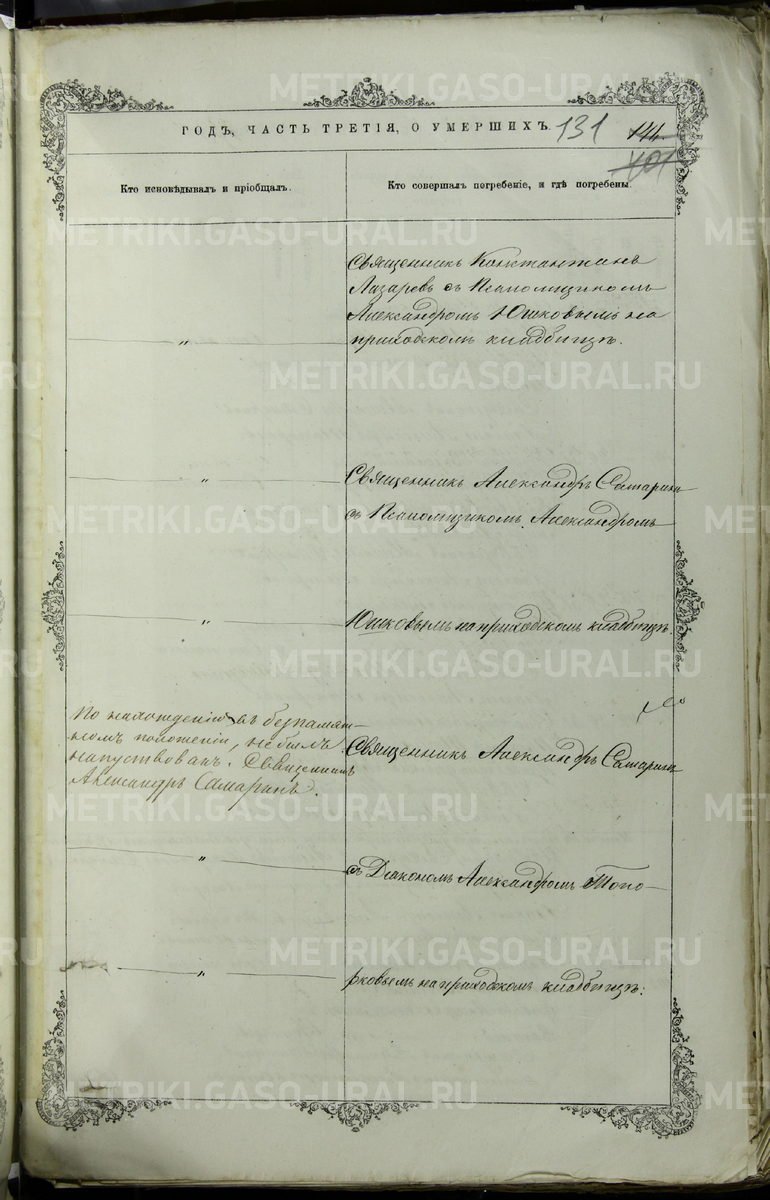 ГОДЪ, ЧАСТЬ ТРЕТІЯ, О УМЕРШИХЪ. 131 144
101
Кто исповѣдывалъ и пріобщалъ.
Кто совершалъ погребеніе, и гдѣ погребены.
Священникъ Константинъ
Лазаревъ съ Псаломщикомъ
Александромъ Юшковымъ на
приходскомъ кладбищѣ.
"
"
Священникъ Александръ Самаринъ
съ Псаломщикомъ Александромъ
"
Юшковымъ на приходскомъ кладбищѣ.
По нахожденію въ безпамят-
номъ положеніи, не былъ
напутствованъ. Священникъ
Александръ Самаринъ.
Священникъ Александръ Самаринъ
"
съ Діакономъ Александромъ Топо-
"
рковымъ на приходскомъ кладбищѣ.
METRIKI.GASO-URAL.RU